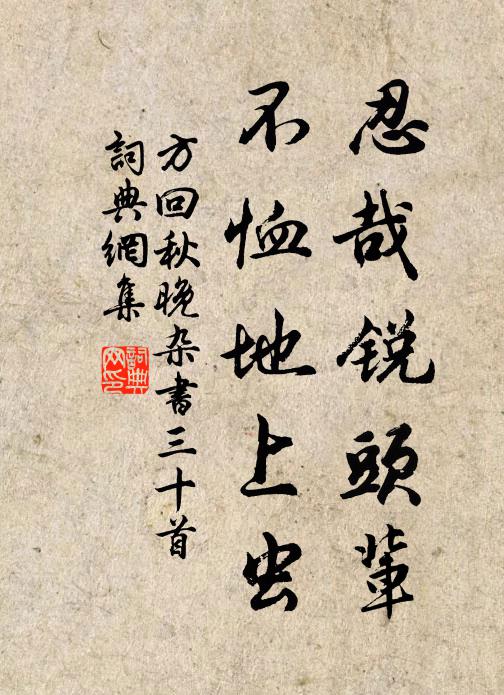 忍哉锐頭輩
不恤地上虫
方回秋晚杂書三十首
詞典網集
詞典網印